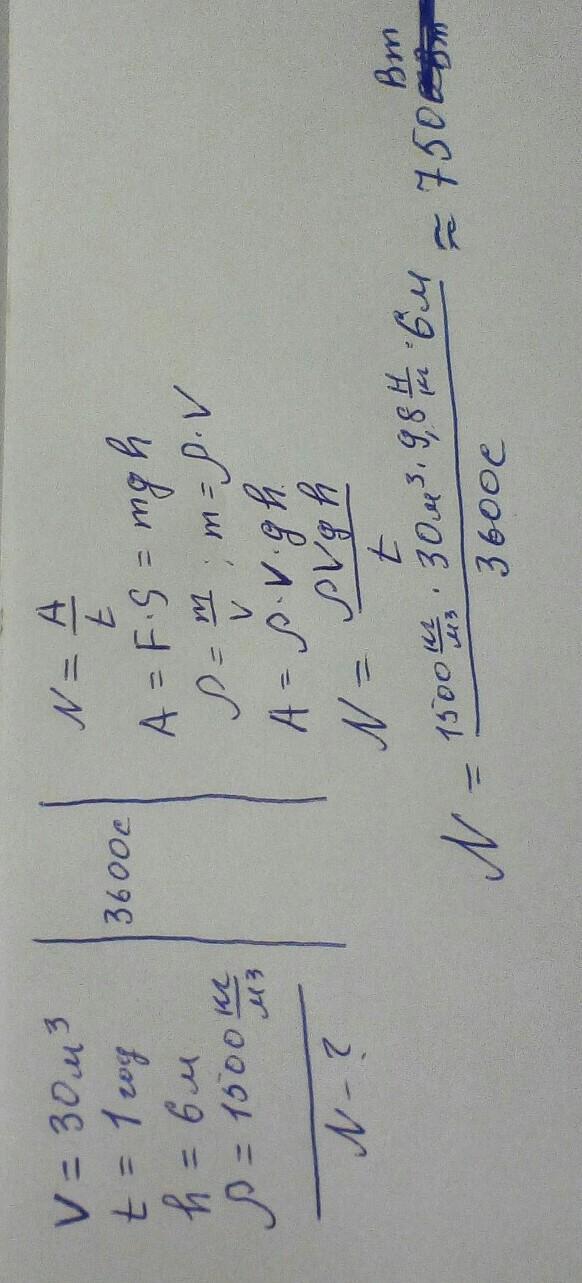 V = 30м³
t = 1 год
h = 6м
ρ = 1500 кг/м³
N - ?
3600с
N = A/t
A = F·S = mgh
ρ = m/V ; m = ρ·V
A = ρ·V·g·h
N = ρVgh/t
N = 1500 кг/м³ · 30м³ · 9,8 Н/кг · 6м / 3600с ≈ 750 Вт